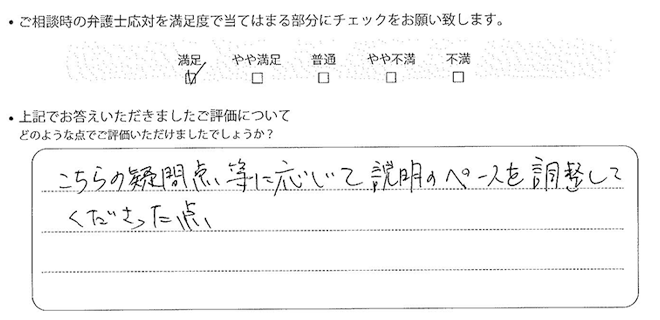 ・ご相談時の弁護士応対を満足度で当てはまる部分にチェックをお願い致します。
満足 やや満足 普通 やや不満 不満
・上記でお答えいただきましたご評価について
どのような点でご評価いただけましたでしょうか？
こちらの疑問点等に応じて説明のペースを調整して
くださった点